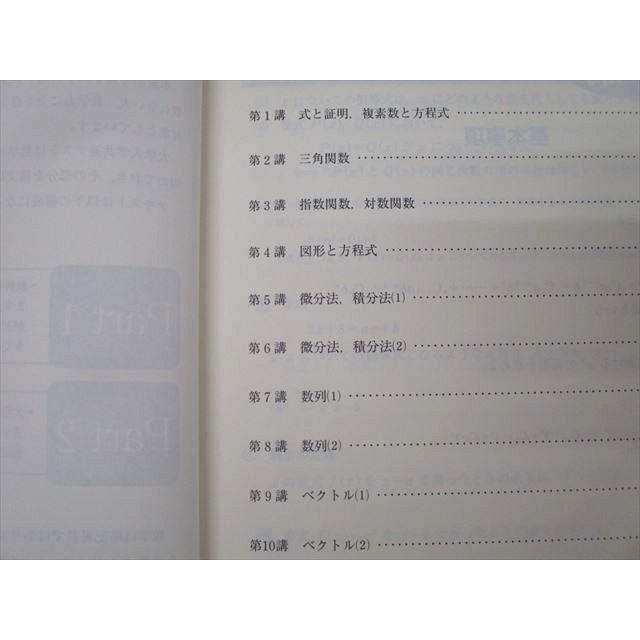 第1講 式と証明，複素数と方程式
第2講 三角関数
第3講 指数関数，対数関数
第4講 図形と方程式
第5講 微分法，積分法(1)
第6講 微分法，積分法(2)
第7講 数列(1)
第8講 数列(2)
第9講 ベクトル(1)
第10講 ベクトル(2)